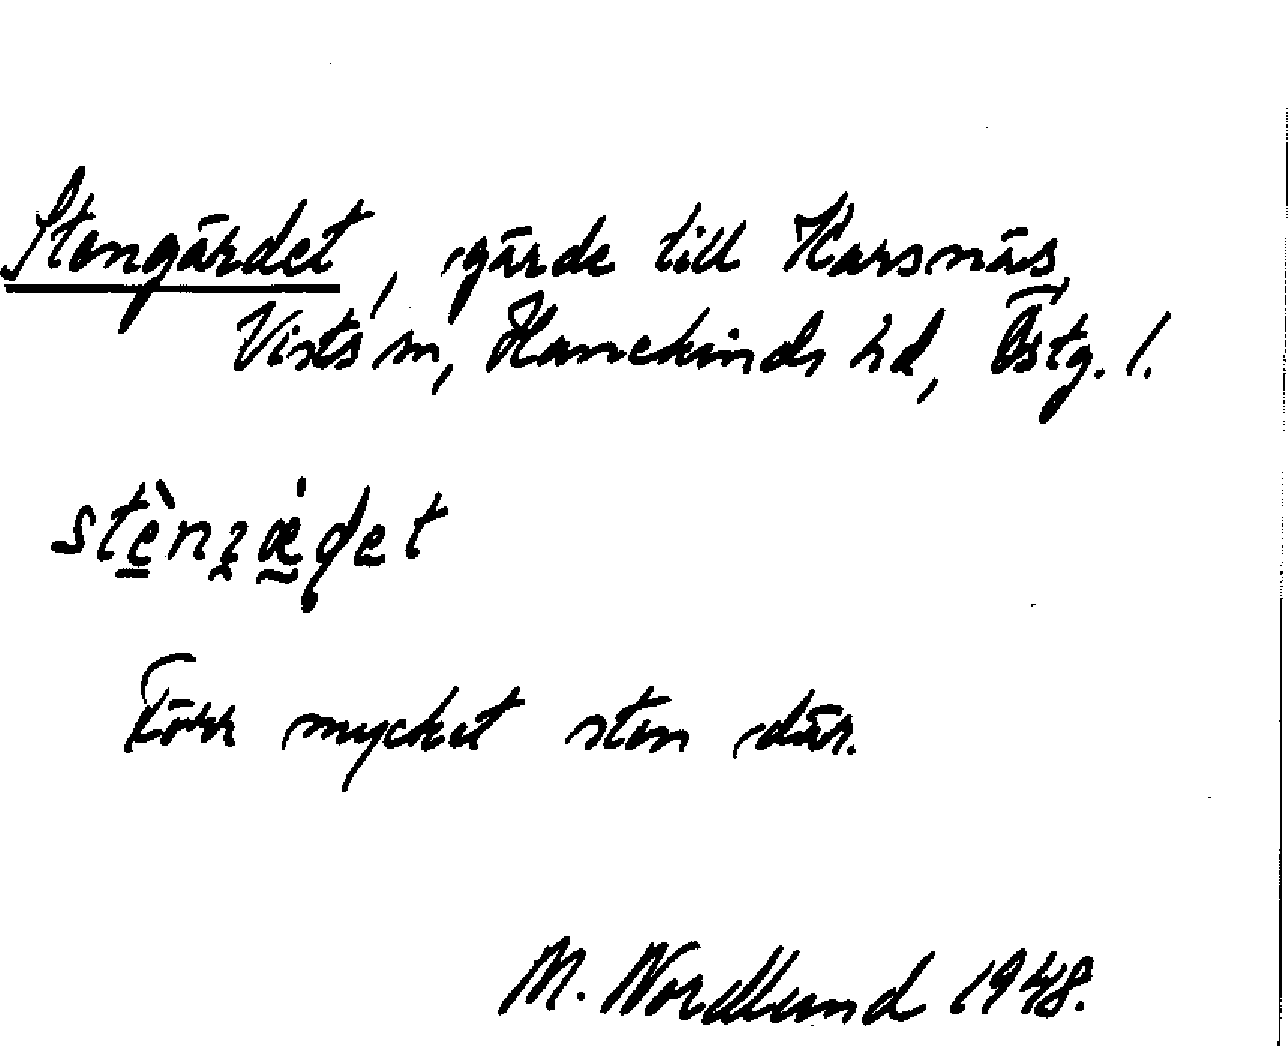 Stengärdet, gärde till Karsnäs,
Vists sn, Hanekinds hd, Östg. l.
stènzǽdet
Förr mycket sten där.
M. Nordlund 1948.